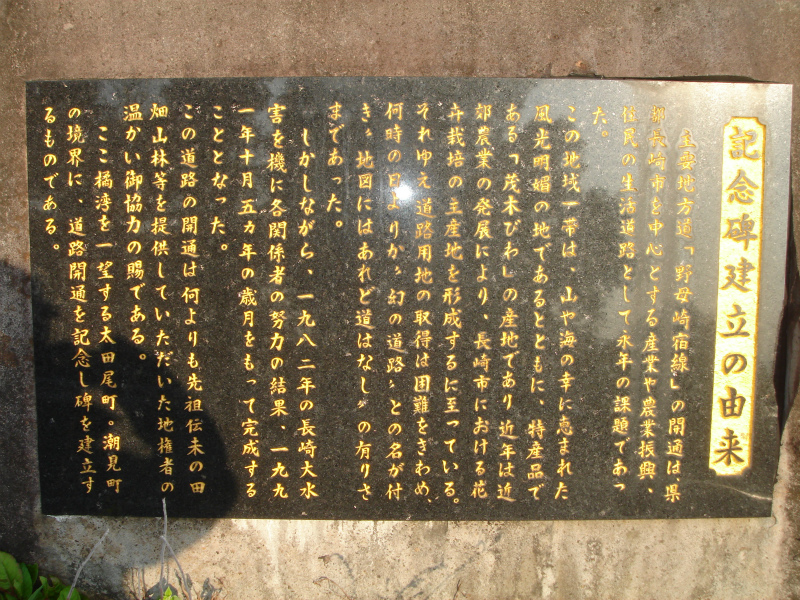 記念碑建立の由来
主要地方道「野母崎宿線」の開通は県
都長崎市を中心とする産業や農業振興、
住民の生活道路として永年の課題であっ
た。
この地域一帯は、山や海の幸に恵まれた
風光明媚の地であるとともに、特産品で
ある「茂木びわ」の産地であり近年は近
郊農業の発展により、長崎市における花
卉栽培の主産地を形成するに至っている。
それゆえ道路用地の取得は困難をきわめ、
何時の日よりか〝幻の道路〟との名が付
き〝地図にはあれど道はなし〟の有りさ
まであった。
しかしながら、一九八二年の長崎大水
害を機に各関係者の努力の結果、一九九
一年十月五カ年の歳月をもって完成する
こととなった。
この道路の開通は何よりも先祖伝来の田
畑山林等を提供していただいた地権者の
温かい御協力の賜である。
ここ橘湾を一望する太田尾町。潮見町
の境界に、道路開通を記念し碑を建立す
るものである。